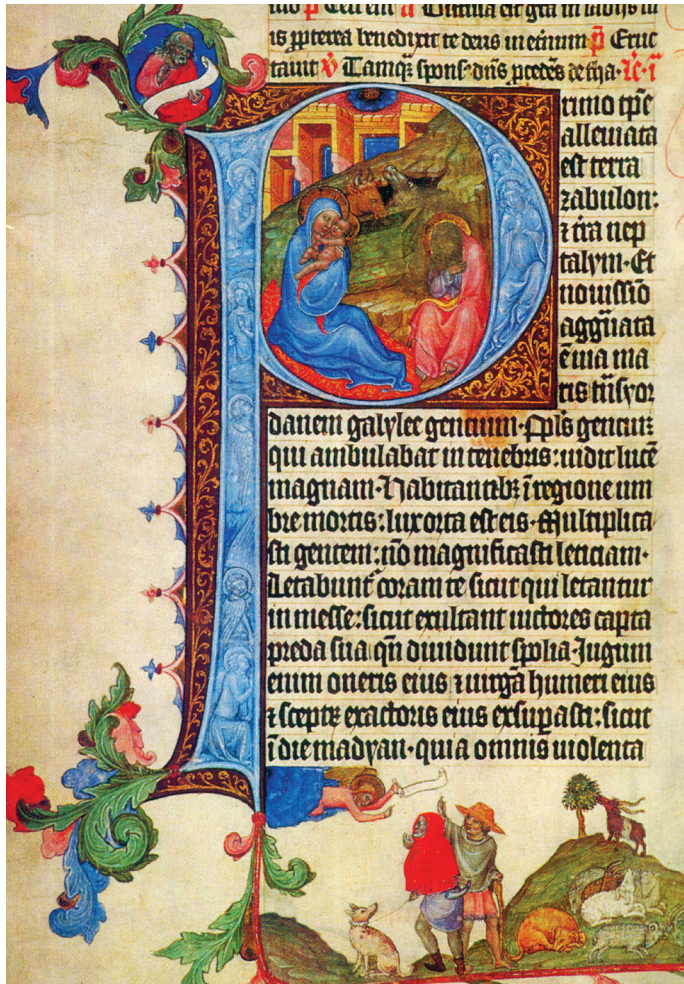 Diffusa est gra in labijs tu
is ꝓpterea benedixit te deus in etnum p̄ Eruc
tauit v̄ Tamqꝫ spons᾽ dn̄s ꝓcedēs de
Primo tp̄e
alleuiata
est terra
zabulon:
⁊ tra nep
talym·Et
nouissīo
agg̃uata
ē uia ma
ris tn̄s yor
danem galylee gencium·Ppl̄s genciuꝫ
qui ambulabat in tenebris: uidit lucē
magnam·Habitantibꝫ ī regione um
bre mortis: lux orta est eis·Multiplica
sti gentem: nō magnificasti leticiam·
Letabunt᷑ coram te sicut qui letantur
in messe: sicut exultant uictores capta
preda sua qn̄ diuidunt spolia Jugum
enim oneris eius ⁊ uirgā humeri eius
⁊ sceptꝝ exactoris eius exsuꝑasti: sicut
ī die madyan·quia omnis uiolenta